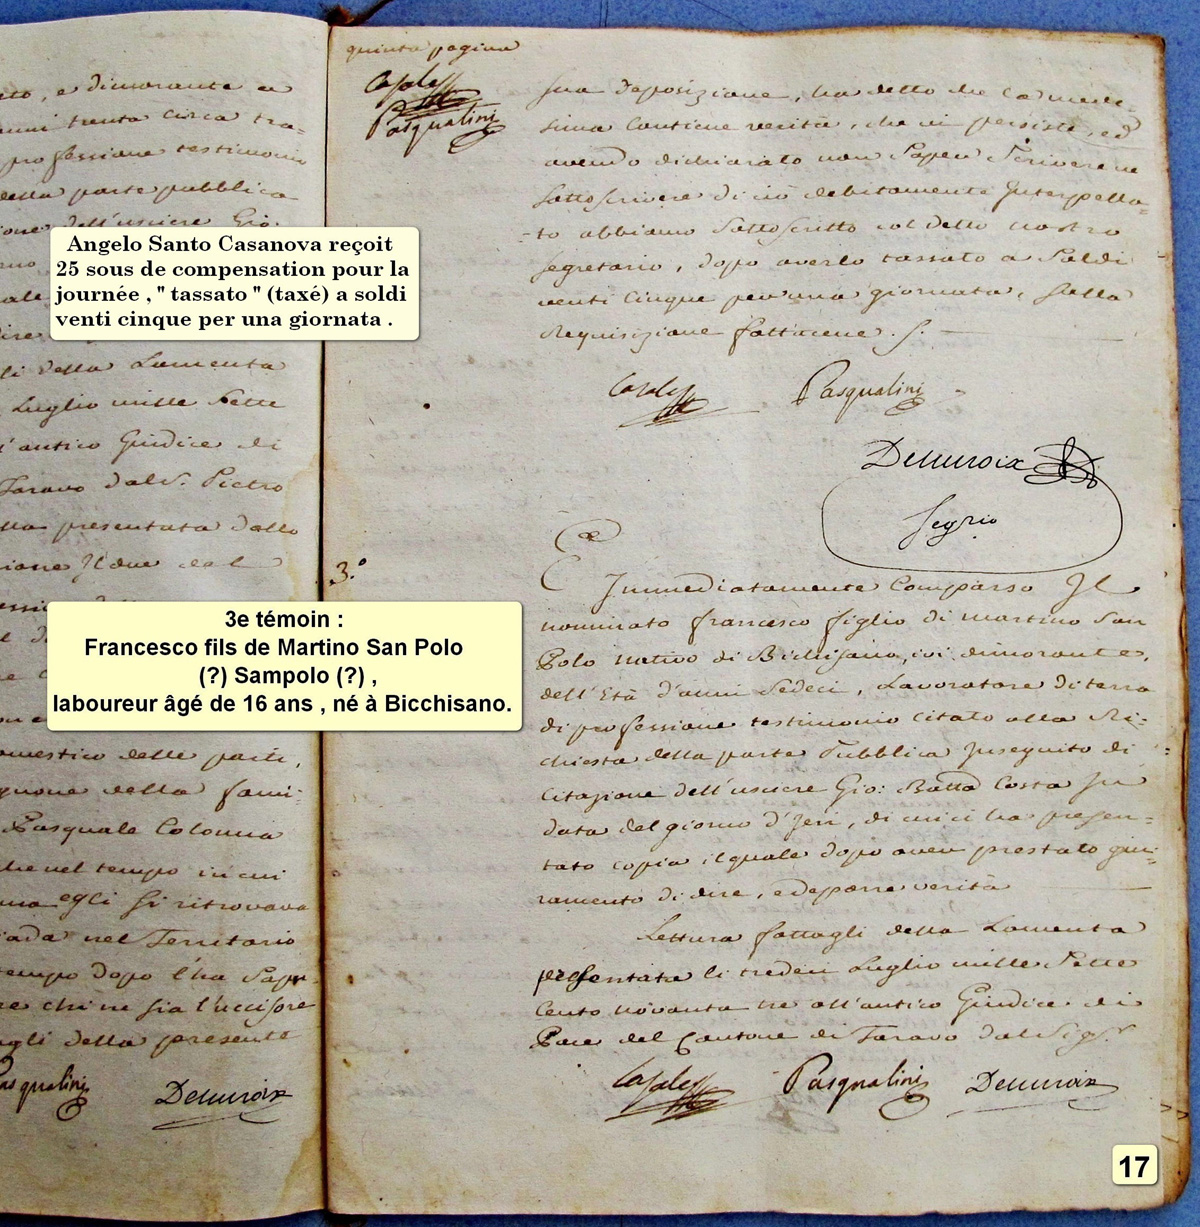 ato, e dimorante a
anni trenta circa tra-
professione testimonio
della parte pubblica
ione dell'usciere Gio:
Angelo Santo Casanova reçoit
25 sous de compensation pour la
journée , " tassato " (taxé) a soldi
venti cinque per una giornata .
li della Lamenta
Luglio mille Sette
l'antico Giudice di
Taravo dal S. Pietro
lla presentata dallo
zione Il due del
3e témoin :
Francesco fils de Martino San Polo
(?) Sampolo (?) ,
laboureur âgé de 16 ans , né à Bicchisano.
omestico delle parti,
gnone della fami-
Pasquale Colonna
he nel tempo in cui
ma egli si ritrovava
iada nel Territorio
tempo dopo l'ha Sapu-
re chi ne sia l'uccisore
agli della presente
Pasqualini Demuroix
quinta pagina
Casale
Pasqualini
sua deposizione, ha detto che la mede-
sima contiene verità, che vi persiste, ed
avendo dichiarato non Saper Scrivere ne
Sottoscrivere di ciò debitamente Interpella-
to abbiamo Sottoscritto col detto nostro
Segretario, dopo averlo tassato a Soldi
venti cinque per una giornata, Sulla
Requisizione fattacene. S.
Casale Pasqualini
Demuroix
Segrio
3.°
E Immediatamente Comparso Il
nominato francesco figlio di martino San
Polo nativo di Bichisano, ivi dimorante,
dell'Età d'anni Sedeci, Lavoratore di terra
di professione testimonio citato alla Ri-
chiesta della parte Pubblica Inseguito di
Citazione dell'usciere Gio: Batta Costa In
data del giorno d'Jeri, di cui ci ha presen-
tato copia il quale dopo aver prestato giu-
ramento di dire, e deporre verità
Lettura fattagli della Lamenta
presentata li tredeci Luglio mille Sette
Cento novanta tre all'antico Giudice di
Pace del Cantone di Taravo dal Sigr.
Casale Pasqualini Demuroix
17